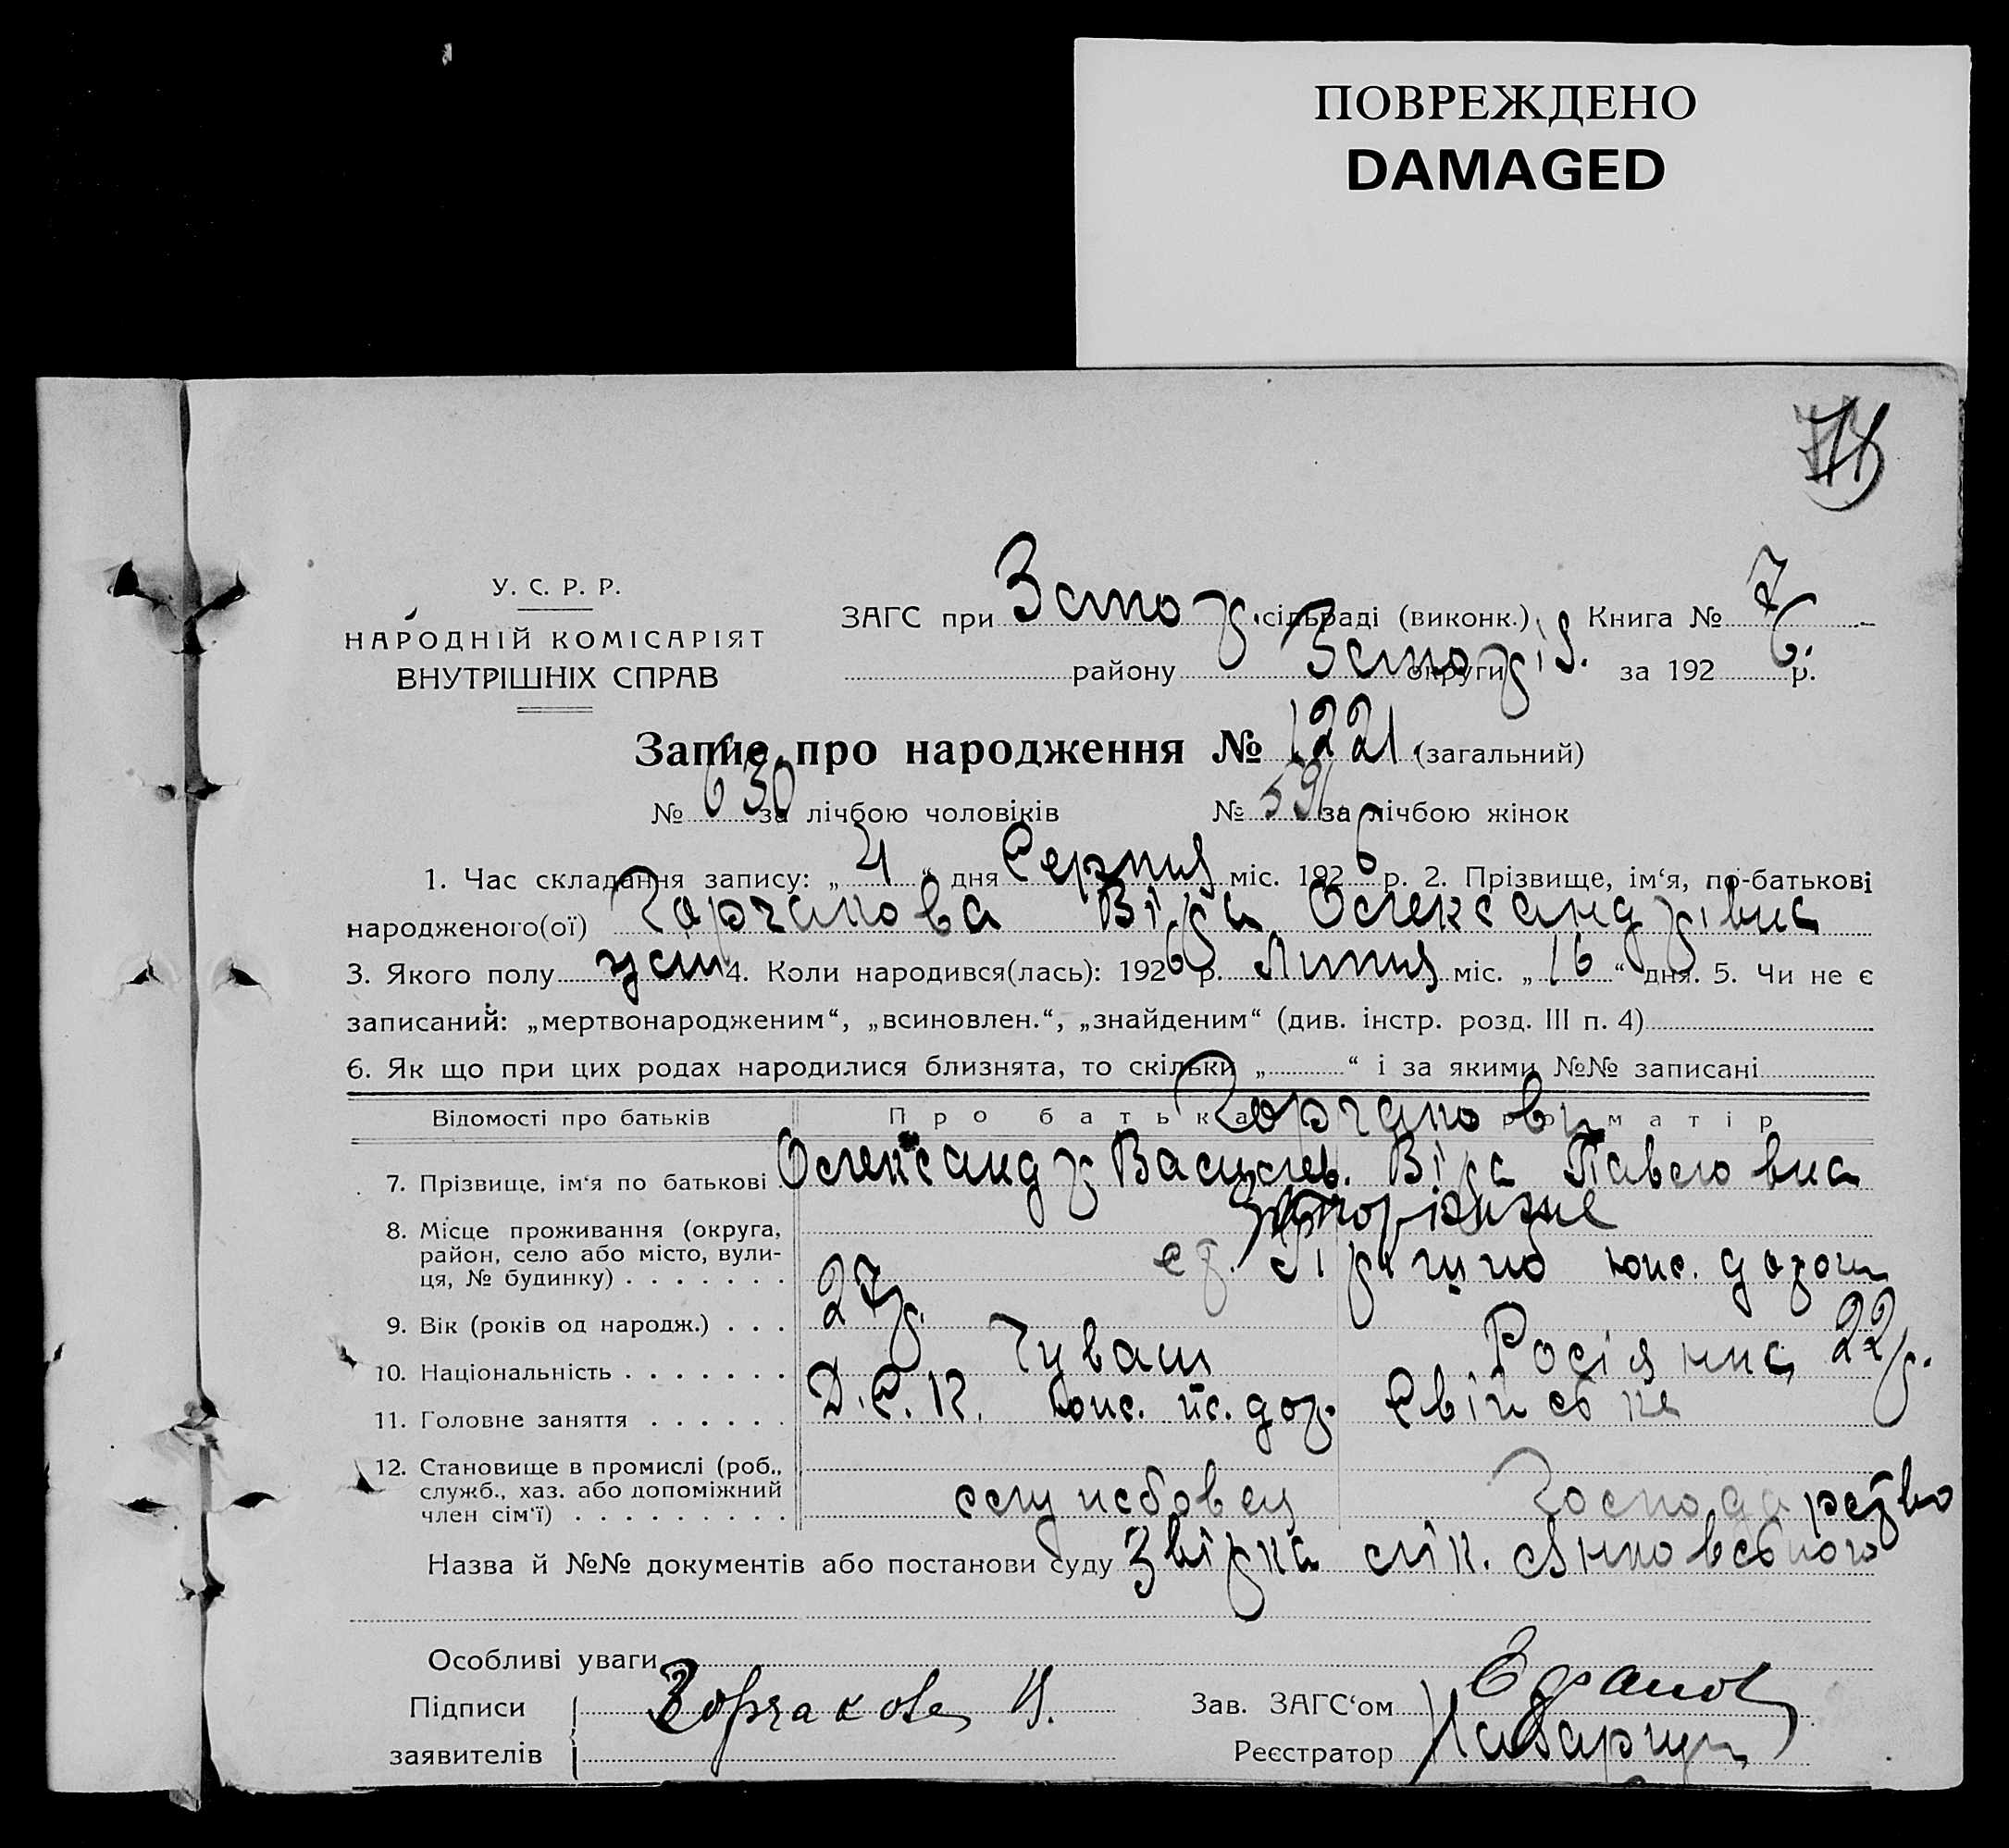 ПОВРЕЖДЕНО
DAMAGED
У. С. Р. Р.
НАРОДНІЙ КОМІСАРІЯТ
ВНУТРІШНІХ СПРАВ
ЗАГС при сільраді (виконк.) Книга № 7
району округи за 1926 р.
Запис про народження № 1221 (загальний)
№ 630 за лічбою чоловіків № 591 за лічбою жінок
1. Час складання запису: „4“ дня Серпня міс. 1926 р. 2. Прізвище, ім‘я, по-батькові
народженого(ої) Горчакова Віра Олександрівна
3. Якого полу жін 4. Коли народився(лась): 1926 р. Липня міс. „16“ дня. 5. Чи не є
записаний: „мертвонародженим“, „всиновлен.“, „знайденим“ (див. інстр. розд. III п. 4)
6. Як що при цих родах народилися близнята, то скільки „ “ і за якими №№ записані
Відомості про батьків Про батька Про матір
Горчакови
7. Прізвище, ім‘я по батькові Олександр Василев. Віра Павловна
8. Місце проживання (округа, район, село або місто, вули-ця, № будинку) Запоріжжє
юж. дороги
9. Вік (років од народж.) 27 р. 22 р.
10. Національність Чуваш Росіянка
11. Головне заняття Д.С.К. юж. зс. дор. Євійське
12. Становище в промислі (роб., служб., хаз. або допоміжний член сім‘ї) служебовец Господарство
Назва й №№ документів або постанови суду Звірка лік. Янковського
Особливі уваги
Підписи заявителів Горчакова В.
Зав. ЗАГС‘ом
Реєстратор